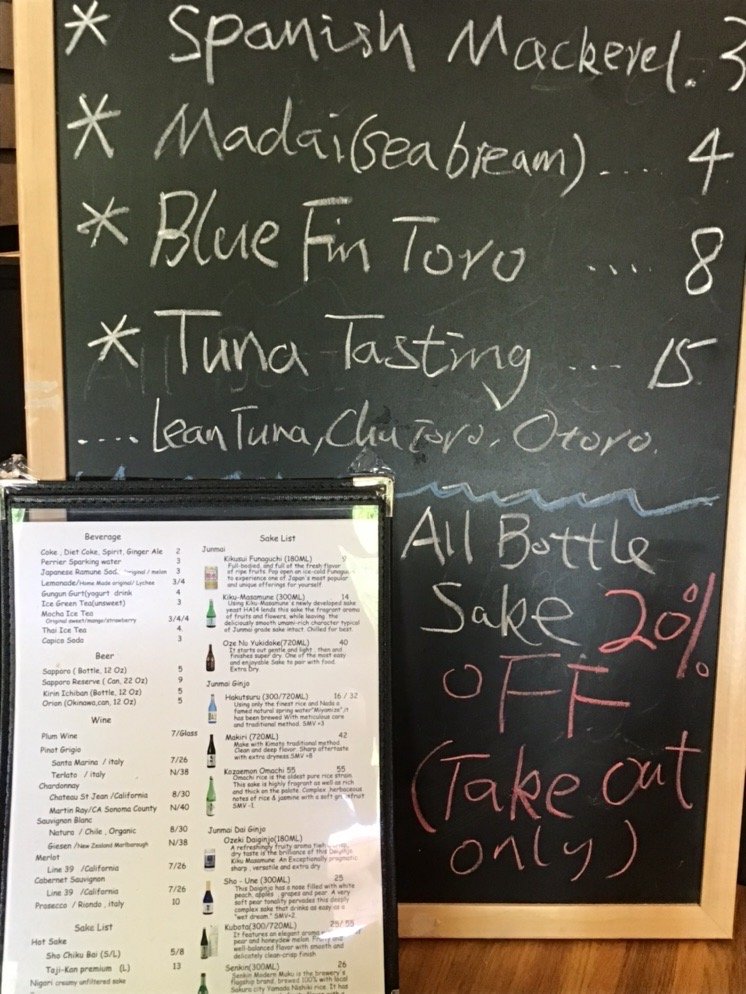 * Spanish Mackerel. 3
* Madai(sea bream).... 4
* Blue Fin Toro .... 8
* Tuna Tasting ... 15
.... Lean Tuna, Chu Toro, Otoro.
All Bottle
Sake 20%
OFF
(Take out
only)
Beverage
Coke , Diet Coke, Spirit, Ginger Ale 2
Perrier Sparking water 3
Japanese Ramune Soda original / melon 3
Lemonade/Home Made original/ Lychee 3/4
Gungun Gurt(yogurt drink 4
Ice Green Tea(unsweet) 3
Mocha Ice Tea
Original sweet/mango/strawberry 3/4/4
Thai Ice Tea 4
Capico Soda 3
Beer
Sapporo ( Bottle, 12 Oz) 5
Sapporo Reserve ( Can, 22 Oz) 9
Kirin Ichiban (Bottle, 12 Oz) 5
Orion (Okinawa,can, 12 Oz) 5
Wine
Plum Wine 7/Glass
Pinot Grigio
Santa Marina / italy 7/26
Terlato / italy N/38
Chardonnay
Chateau St Jean /California 8/30
Martin Ray/CA Sonoma County N/40
Sauvignon Blanc
Natura / Chile , Organic 8/30
Giesen /New Zealand Marlborough N/38
Merlot
Line 39 /California 7/26
Cabernet Sauvignon
Line 39 /California 7/26
Prosecco / Riondo , italy 10
Sake List
Hot Sake
Sho Chiku Bai (S/L) 5/8
Taji-Kan premium (L) 13
Nigori creamy unfiltered sake
Sake List
Junmai
Kikusui Funaguchi (180ML) 9
Full-bodied, and full of the fresh flavor
of ripe fruits. Pop open an ice-cold Funaguchi
to experience one of Japan's most popular
and unique offerings for yourself.
Kiku-Masamune (300ML) 14
Using Kiku-Masamune's newly developed sake
yeast HA14 lends this sake the fragrant aroma
of fruits and flowers, while leaving the
deliciously smooth umami-rich character typical
of Junmai grade sake intact. Chilled for best.
Oze No Yukidoke(720ML) 40
It starts out gentle and light , then and
finishes super dry. One of the most easy
and enjoyable Sake to pair with food.
Extra Dry.
Junmai Ginjo
Hakutsuru (300/720ML) 16 / 32
Using only the finest rice and Nada's
famed natural spring water"Miyamizu",it
has been brewed With meticulous care
and traditional method. SMV +3
Makiri (720ML) 42
Make with Kimoto traditional method
Clean and deep flavor. Sharp aftertaste
with extra dryness SMV +8
Kozaemon Omachi 55 55
Omachi rice is the oldest pure rice strain.
This sake is highly fragrant as well as rich
and thick on the palate. Complex ,herbaceous
notes of rice & jasmine with a soft
SMV -1.
Junmai Dai Ginjo
Ozeki Daiginjo(180ML)
A refreshingly fruity aroma
dry taste is the brilliance of this Daiginjo
Kiku Masamune. An Exceptionally
sharp , versatile and extra dry
Sho - Une (300ML) 25
This Daiginjo has a nose filled with white
peach, apples , grapes and pear. A very
soft pear tonality pervades this deeply
complex sake that drinks as easy as a
"wet dream." SMV+2.
Kubota(300/720ML) 25/ 55
It features an elegant aroma
pear and honeydew melon.
well-balanced flavor with smooth and
delicately clean-crisp finish
Senkin(300ML) 26
Senkin Modern Muku is the brewery's
flagship brand, brewed 100% with local
Sakura city Yamada Nishiki rice. It has